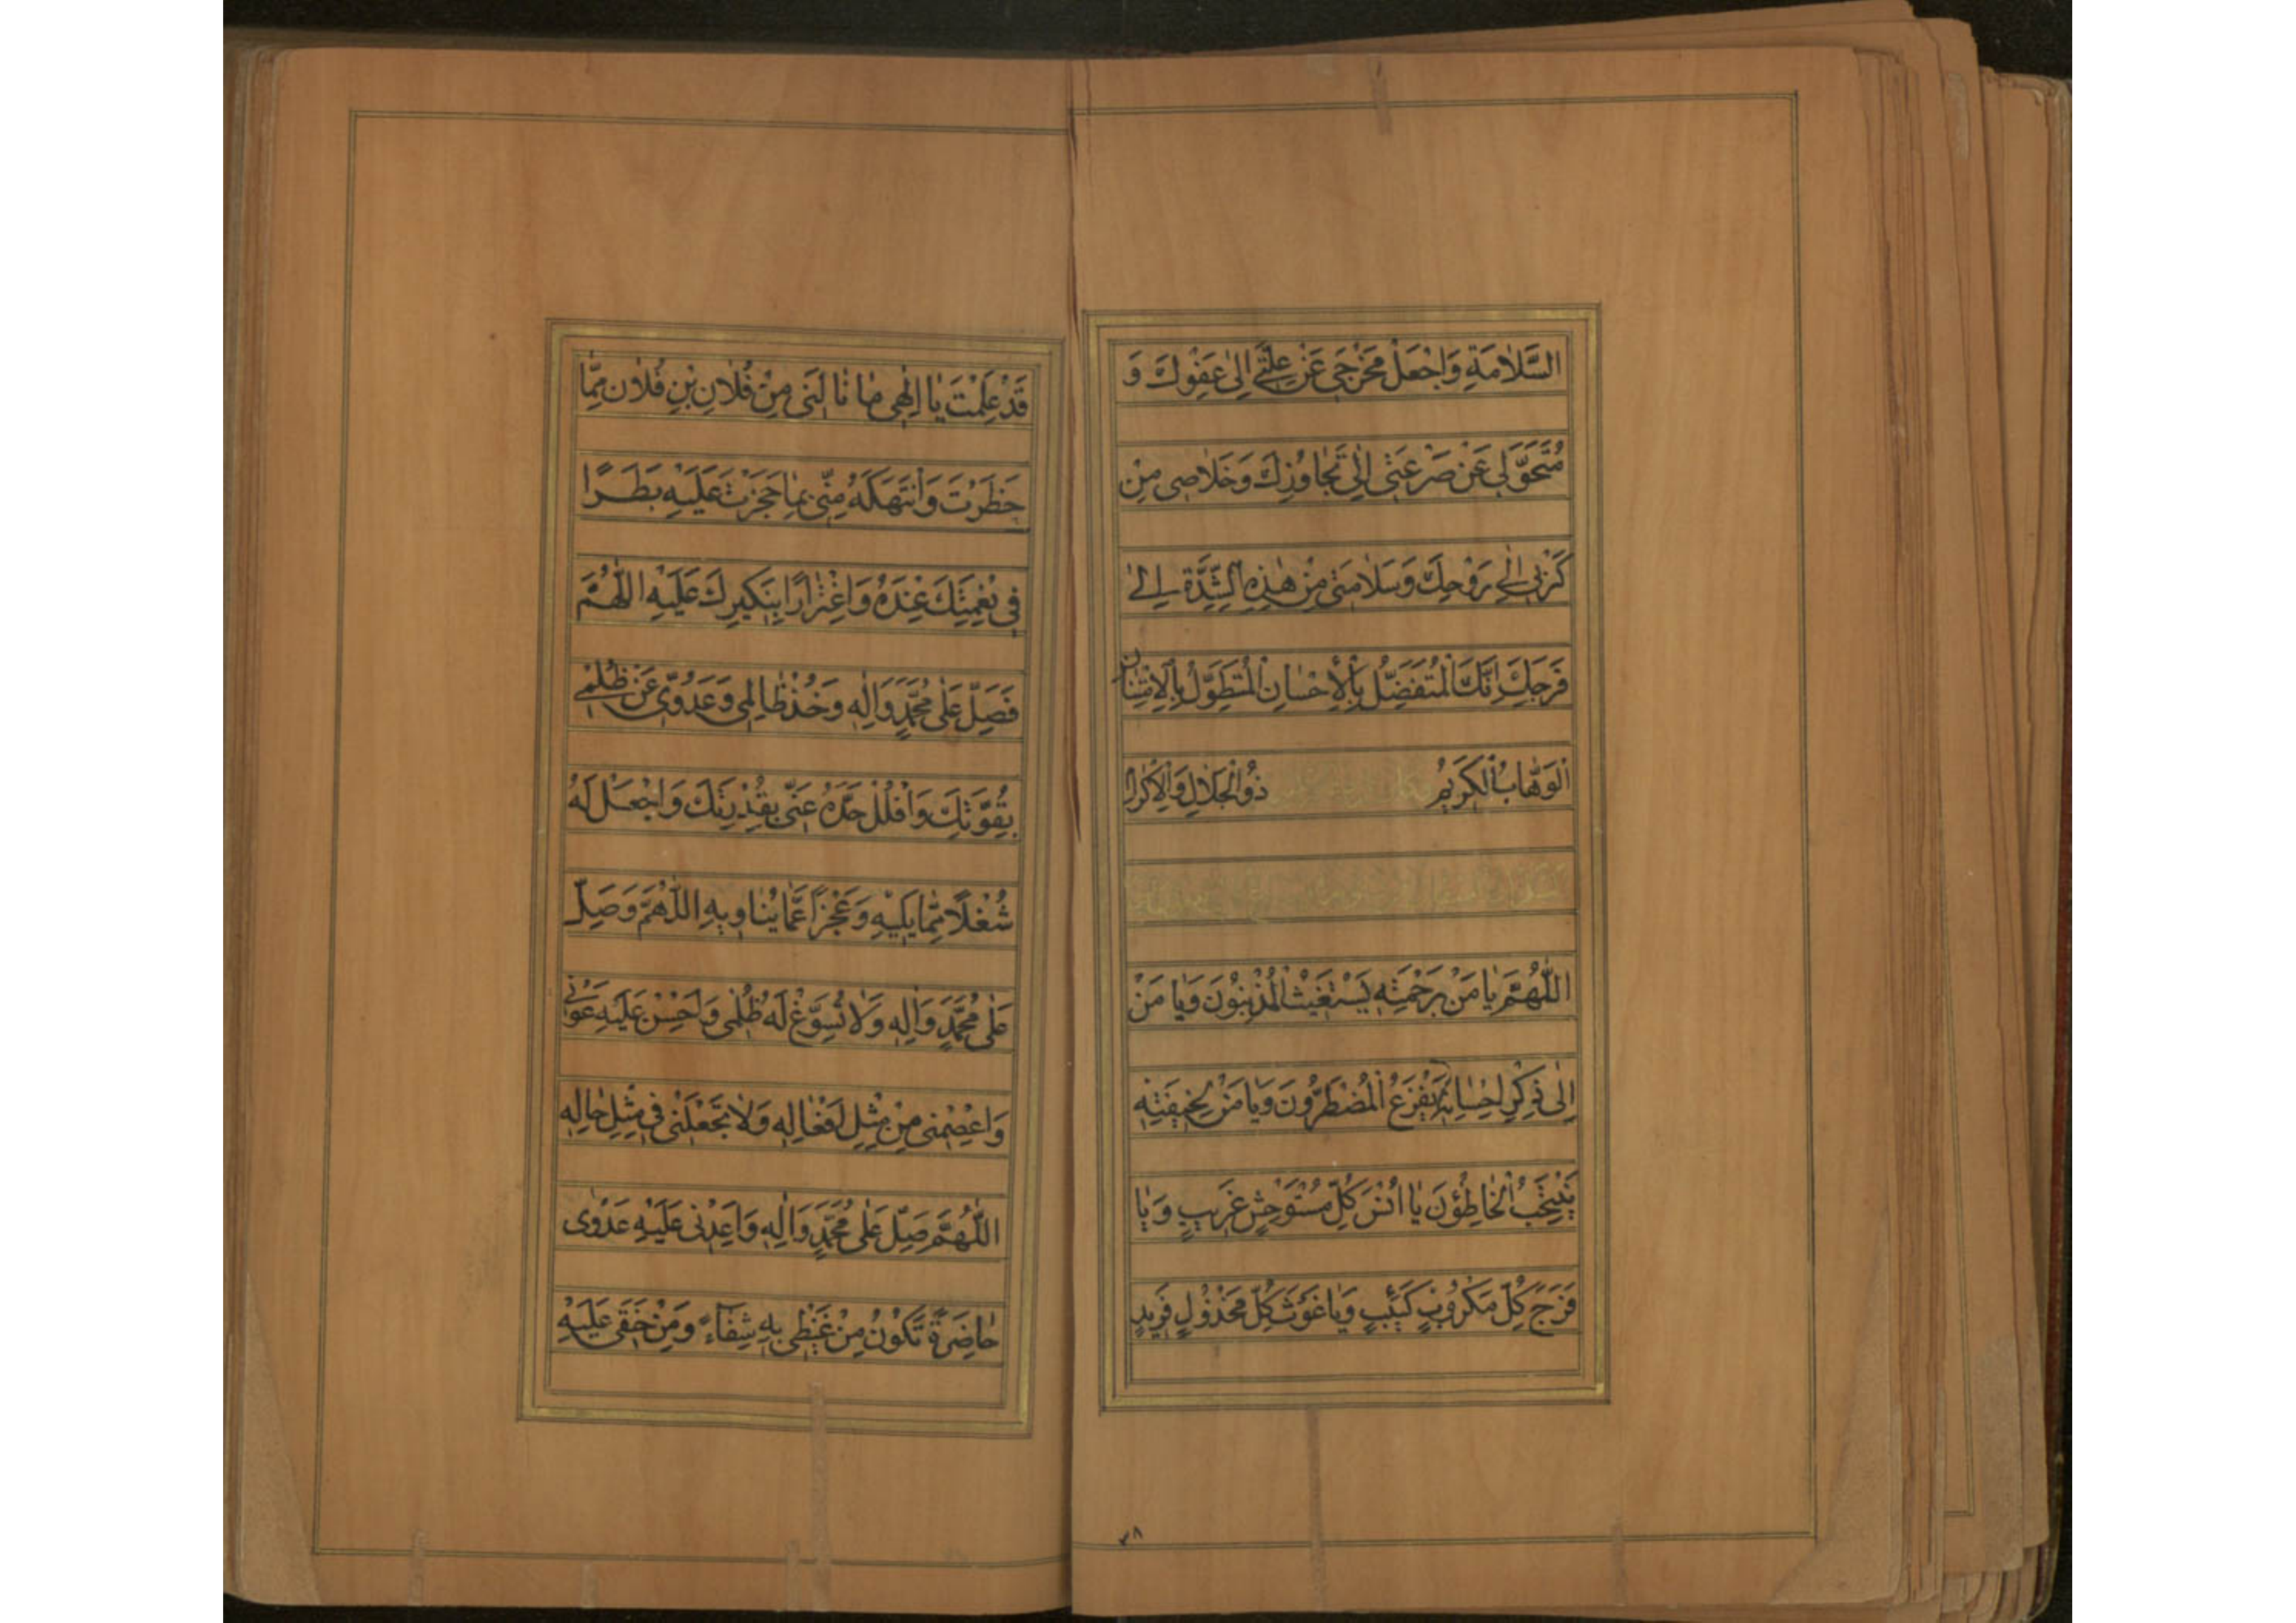 السَّلَامَةِ وَاجْعَلْ مَخْرَجِي عَنْ عِلَّتِي إِلَى عَفْوِكَ وَ
مُتَحَوَّلِي عَنْ صَرْعَتِي إِلَى تَجَاوُزِكَ وَخَلَاصِي مِنْ
كَرْبِي إِلَى رَوْحِكَ وَسَلَامَتِي مِنْ هٰذِهِ الشِّدَّةِ إِلَى
فَرَجِكَ إِنَّكَ الْمُتَفَضِّلُ بِالْإِحْسَانِ الْمُتَطَوِّلُ بِالْاِمْتِنَانِ
الْوَهَّابُ الْكَرِيمُ ذُو الْجَلَالِ وَالْإِكْرَامِ
اللّٰهُمَّ يَا مَنْ بِرَحْمَتِهِ يَسْتَغِيثُ الْمُذْنِبُونَ وَيَا مَنْ
إِلَى ذِكْرِ إِحْسَانِهِ يَفْزَعُ الْمُضْطَرُّونَ وَيَا مَنْ لِخِيفَتِهِ
يَنْتَحِبُ الْخَاطِئُونَ يَا أُنْسَ كُلِّ مُسْتَوْحِشٍ غَرِيبٍ وَيَا
فَرَجَ كُلِّ مَكْرُوبٍ كَئِيبٍ وَيَا غَوْثَ كُلِّ مَخْذُولٍ فَرِيدٍ
٣٨
قَدْ عَلِمْتَ يَا إِلٰهِي مَا نَالَنِي مِنْ فُلَانِ بْنِ فُلَانٍ مِمَّا
حَظَرْتَ وَانْتَهَكَهُ مِنِّي بِمَا حَجَزْتَ عَلَيْهِ بَطَرًا
فِي نِعْمَتِكَ عِنْدَهُ وَاغْتِرَارًا بِنَكِيرِكَ عَلَيْهِ اللّٰهُمَّ
فَصَلِّ عَلَى مُحَمَّدٍ وَآلِهِ وَخُذْ ظَالِمِي وَعَدُوِّي عَنْ ظُلْمِي
بِقُوَّتِكَ وَافْلُلْ حَدَّهُ عَنِّي بِقُدْرَتِكَ وَاجْعَلْ لَهُ
شُغْلًا مِمَّا يَلِيهِ وَعَجْزًا عَمَّا يُنَاوِيهِ اللّٰهُمَّ وَصَلِّ
عَلَى مُحَمَّدٍ وَآلِهِ وَلَا تُسَوِّغْ لَهُ ظُلْمِي وَأَحْسِنْ عَلَيْهِ عَوْنِي
وَاعْصِمْنِي مِنْ مِثْلِ أَفْعَالِهِ وَلَا تَجْعَلْنِي فِي مِثْلِ حَالِهِ
اللّٰهُمَّ صَلِّ عَلَى مُحَمَّدٍ وَآلِهِ وَأَعِدْنِي عَلَيْهِ عَدْوٰى
حَاضِرَةً تَكُونُ مِنْ غَيْظِي بِهِ شِفَاءً وَمِنْ حَنَقِي عَلَيْهِ